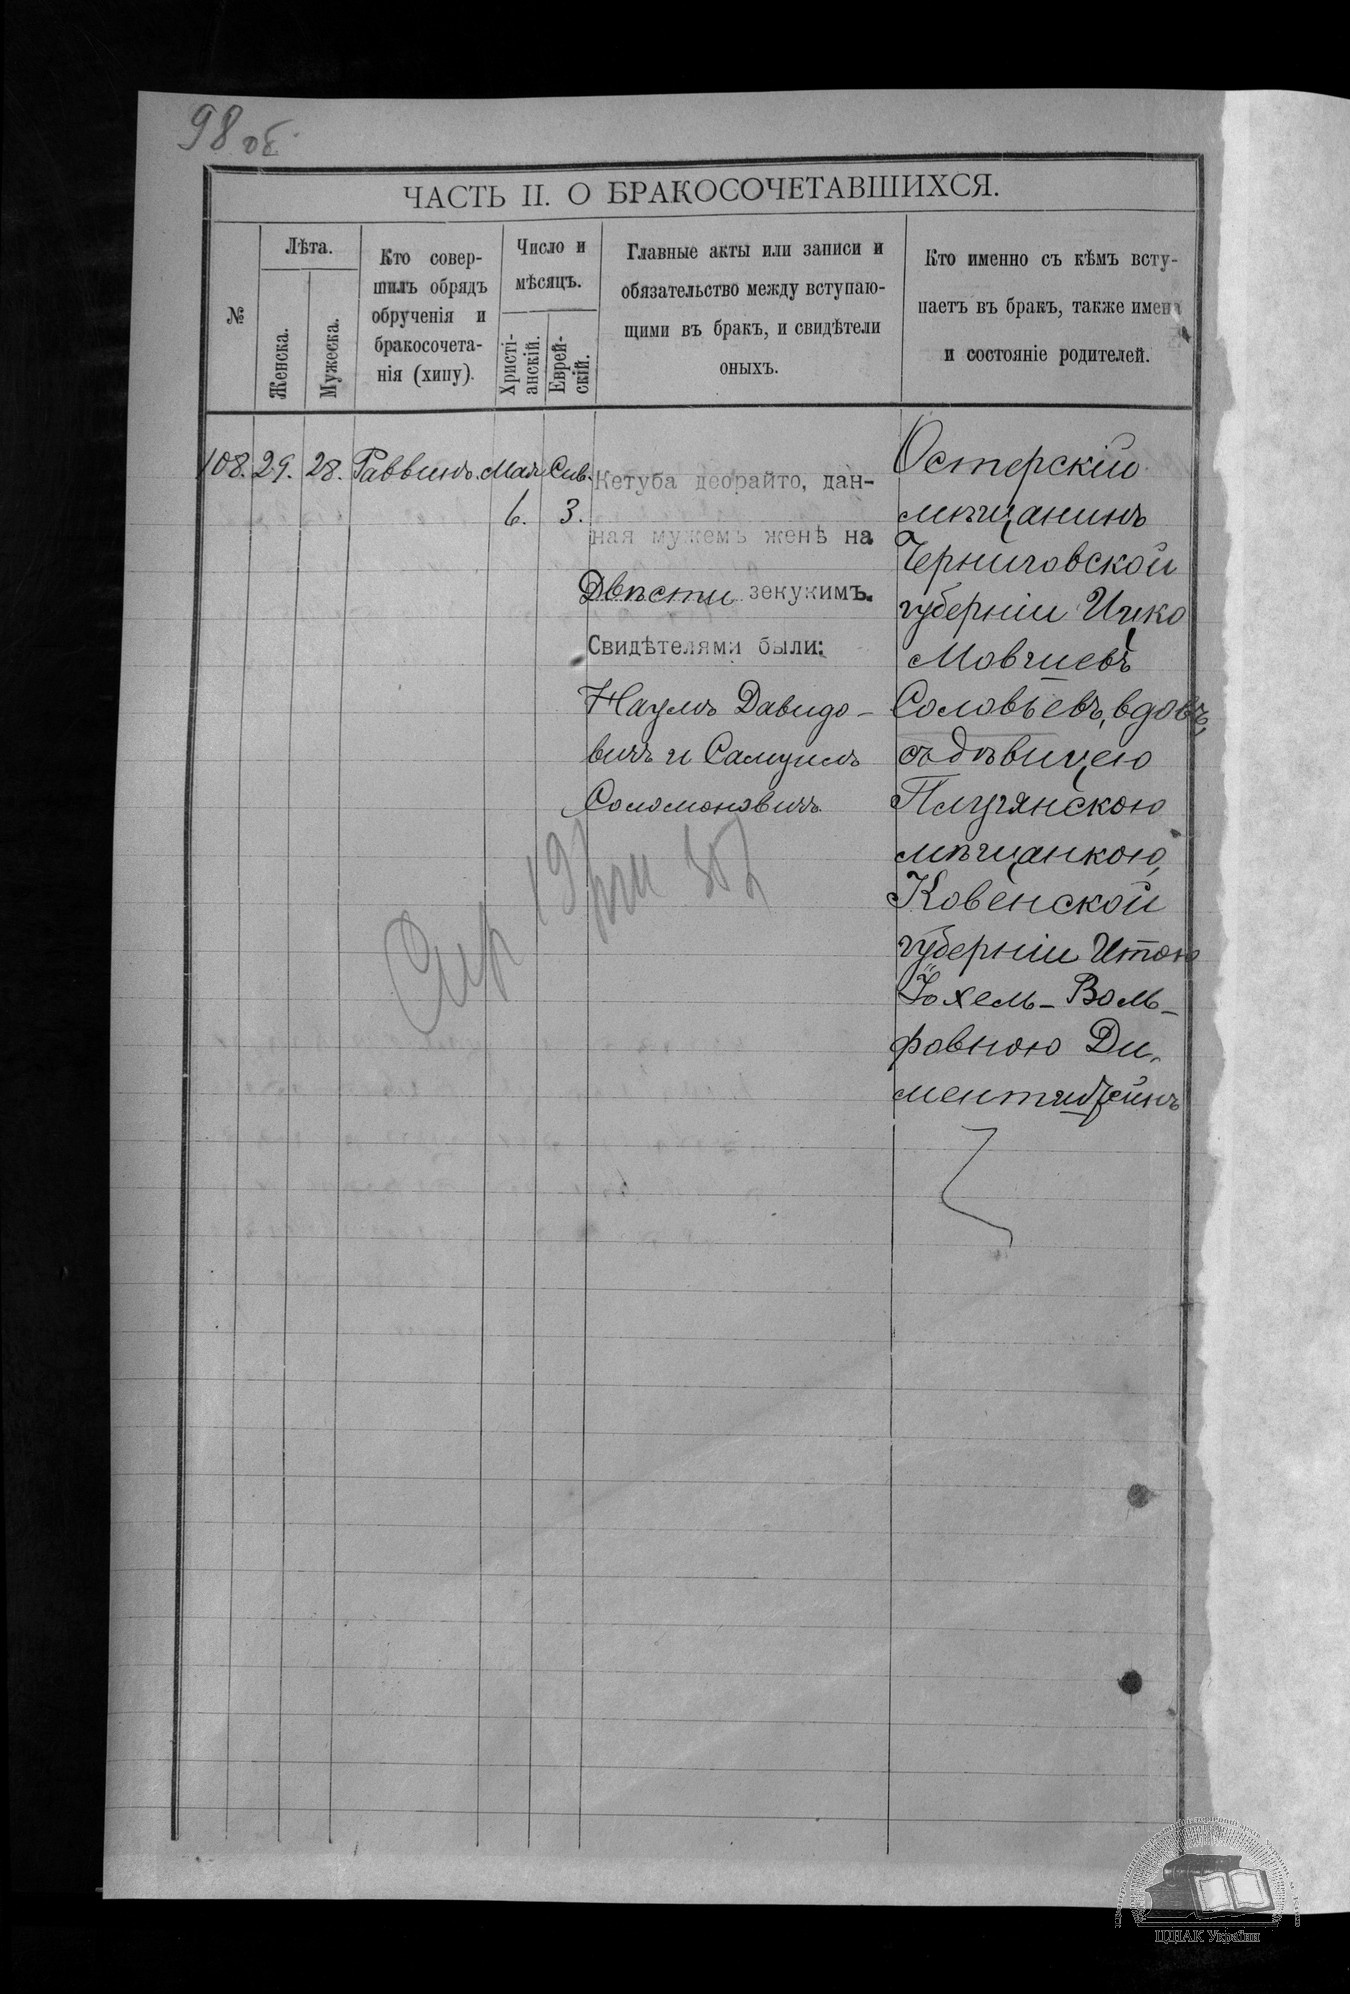 98 об.
ЧАСТЬ II. О БРАКОСОЧЕТАВШИХСЯ.
№
Лѣта.
Женска.
Мужеска.
Кто совер-
шилъ обрядъ
обрученія и
бракосочета-
нія (хипу).
Число и
мѣсяцъ.
Христі-
анскій.
Еврей-
скій.
Главные акты или записи и
обязательство между вступаю-
щими въ бракъ, и свидѣтели
оныхъ.
Кто именно съ кѣмъ всту-
паетъ въ бракъ, также имена
и состояніе родителей.
108. 29. 28. Раввинъ. Мая Сив.
6. 3.
Кетуба деорайто, дан-
ная мужемъ женѣ на
Двѣсти зекукимъ.
Свидѣтелями были:
Наумъ Давидо-
вичъ и Самуилъ
Соломоновичъ.
Остерскій
мѣщанинъ
Черниговской
губерніи Ицко
Мовчиевъ
Соловьевъ, вдовъ,
съ дѣвицею
Плугянскою
мѣщанкою,
Ковенской
губерніи Итою
Йохель-Воль-
фовною Ди-
ментштейнъ
ЦДІАК України